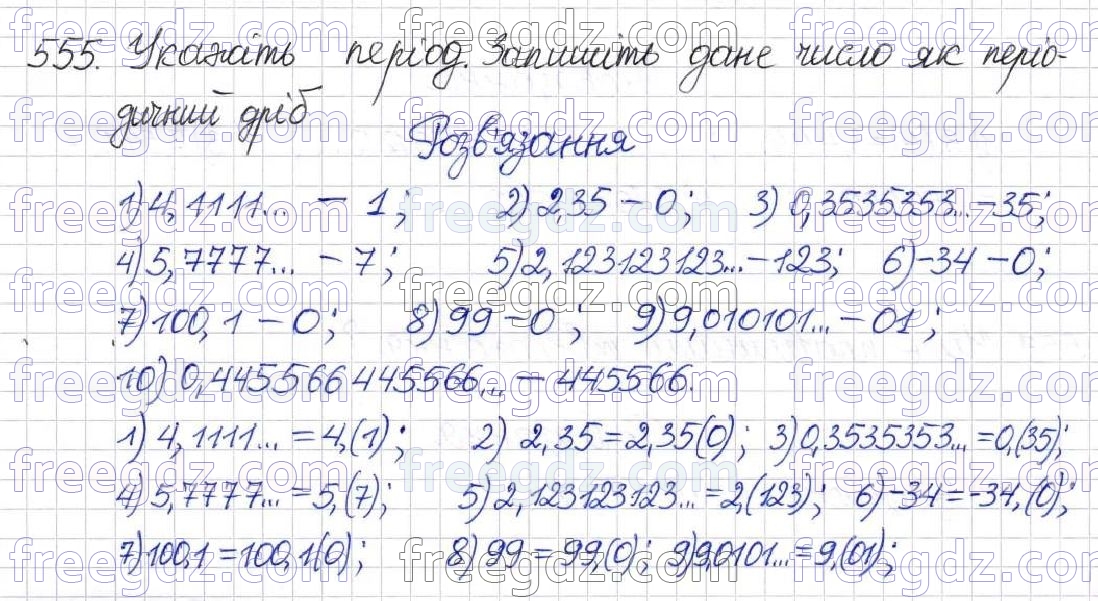 555. Укажіть період. Запишіть дане число як періо-
дичний дріб
Розв'язання
1) 4,1111... – 1; 2) 2,35 – 0; 3) 0,3535353... – 35;
4) 5,7777... – 7; 5) 2,123123123... – 123; 6) -34 – 0;
7) 100,1 – 0; 8) 99 – 0; 9) 9,010101... – 01;
10) 0,445566445566... – 445566.
1) 4,1111... = 4,(1); 2) 2,35 = 2,35(0); 3) 0,3535353... = 0,(35);
4) 5,7777... = 5,(7); 5) 2,123123123... = 2,(123); 6) -34 = -34,(0);
7) 100,1 = 100,1(0); 8) 99 = 99,(0); 9) 9,0101... = 9,(01);
freegdz.com